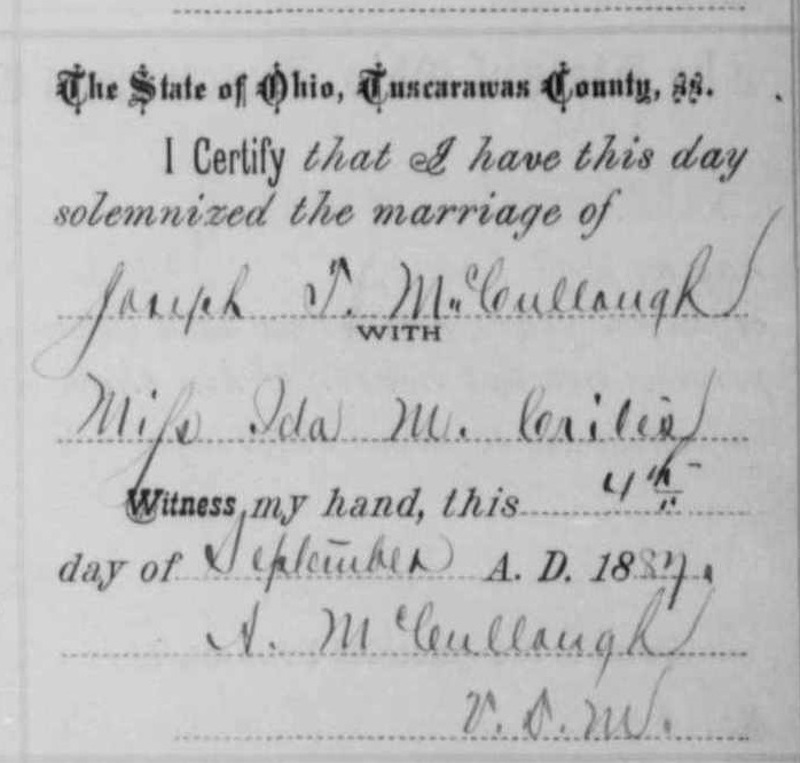 The State of Ohio, Tuscarawas County, ss.
I Certify that I have this day
solemnized the marriage of
Joseph T. McCullough
WITH
Miss Ida M.
Witness my hand, this 4th
day of September A. D. 1887.
A. McCullough
V. D. M.